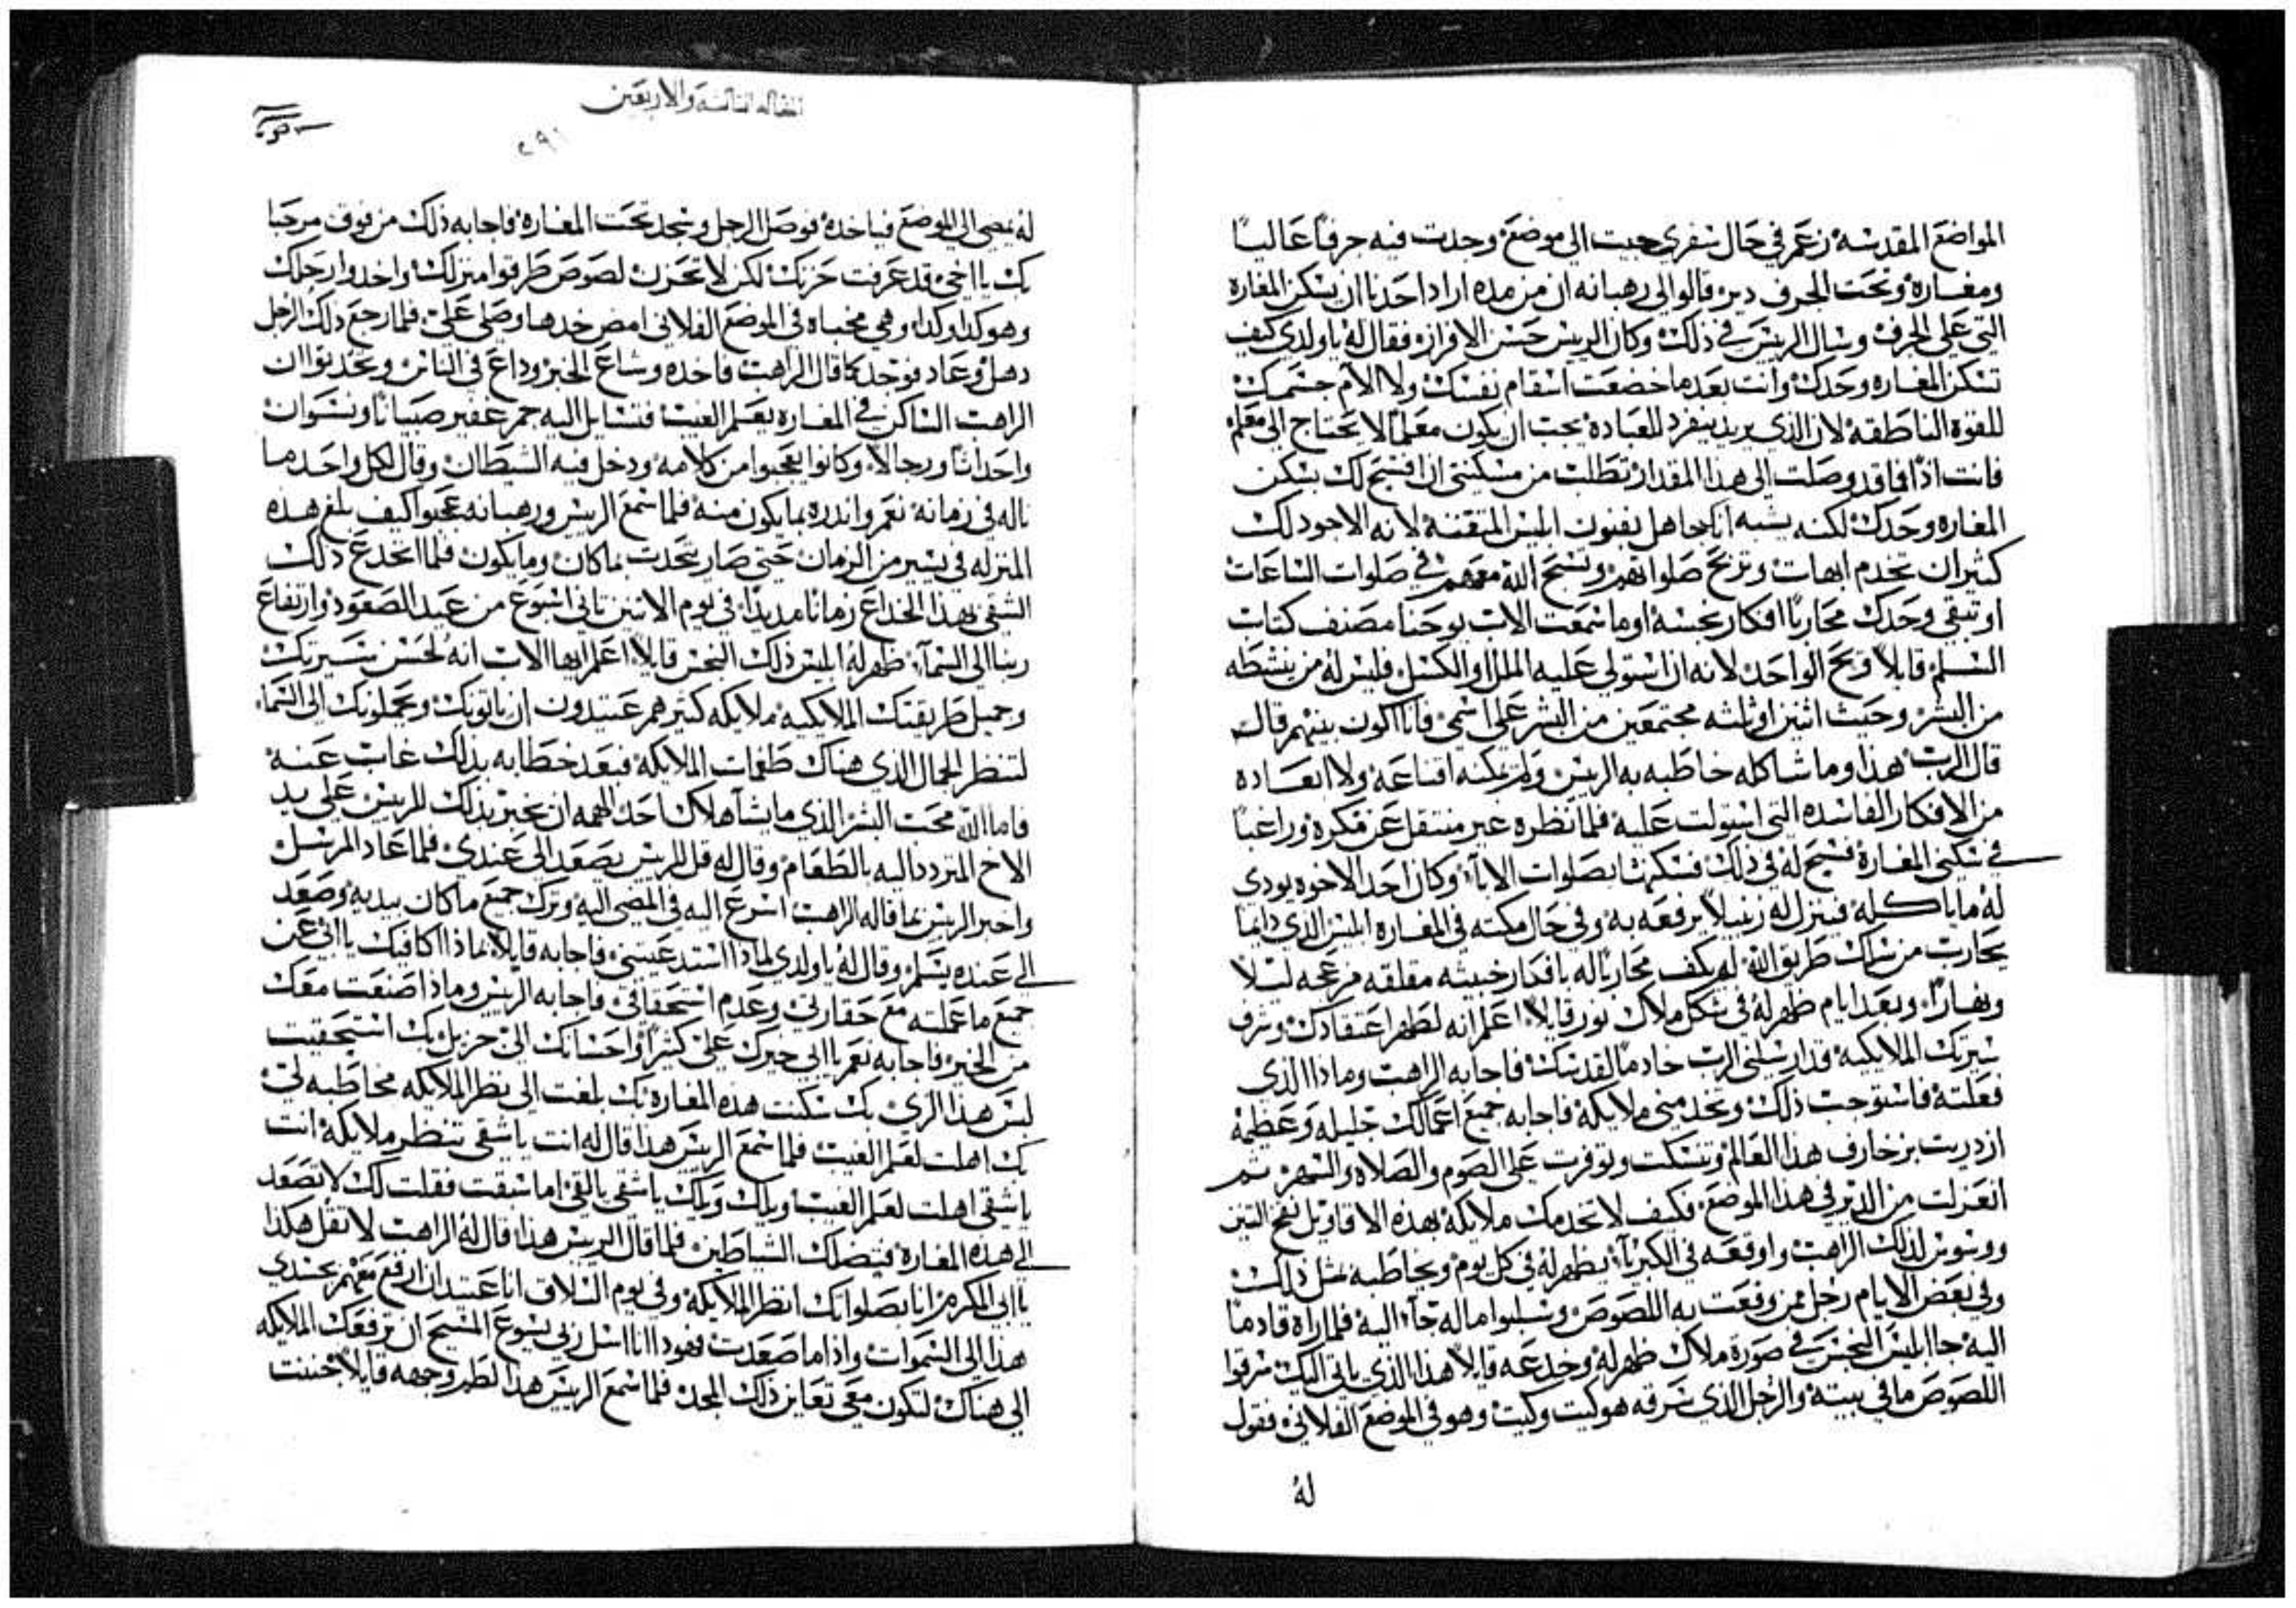 المواضع المقدسه زعم في حال سفري جيت الي موضع وجدت فيه جرفاً عالياً
ومغاره وتحت الجرف دير قالوا لي رهبانه ان من مده اراد احدنا ان يسكن المغاره
التي علي الجرف وسال الريس في ذلك وكان الريس حسن الافراز فقال له ياولدي كيف
تسكن المغاره وحدك وانت بعد ما خضعت اسقام نفسك ولا الام جسمك
للقوه الناطقه لان الذي يريد ينفرد للعباده يجب ان يكون معلماً لا يحتاج الي معلم
فانت اذا فاقد وصلت الي هذا المقدار تطلب من مسكنتي ان افسح لك بسكن
المغاره وحدك لكنه يشبه انك جاهل بفنون ابليس المتقنه لانه الاجود لك
كثيراً ان تخدم ابهات وتربح صلواتهم وتسبح الله معهم في صلوات الساعات
او تبقي وحدك محارباً افكار نجسه اوما سمعت الاب يوحنا مصنف كتاب
السلم قايلاً ويح الواحد لانه ان استولي عليه الملل او الكسل فليس له من ينشطه
من البشر وحيث اثنين او ثلثه مجتمعين من البشر علي اسمي فانا اكون بينهم قال
قال الرب هذا وما شاكله خاطبه به الريس ولم يمكنه اقناعه ولا ابعاده
من الافكار الفاسده التي استولت عليه فلما نظره غير منتقل عن فكره وراغباً
في سكني المغاره فسح له في ذلك فسكنها بصلوات الابآء وكان احد الاخوه يودي
له ما ياكله فينزل له زنبيلاً يرفعه به وفي حال مكثه في المغاره ابليس الذي دايما
يحارب من سلك طريق الله لم يكف محارباً له بافكار خبيثه مقلقه مزعجه ليلاً
ونهاراً وبعد ايام ظهر له في شكل ملاك نور قايلاً اعلم انه لطهر اعتقادك وشرف
سيرتك الملايكيه قد ارسلني الرب خادماً لقدسك فاجابه الراهب وماذا الذي
فعلته فاستوجب ذلك وتخدمني ملايكه فاجابه جميع اعمالك جليله وعظيمه
ازدريت بزخارف هذا العالم وتنسكت وتوفرت علي الصوم والصلاه والسهر ثم
انعزلت من الدير في هذا الموضع فكيف لا تخدمك ملايكه بهذه الاقاويل نفخ التنين
ووسوس لذلك الراهب واوقعه في الكبرياء يظهر له في كل يوم ويخاطبه بمثل ذلك
وفي بعض الايام رجل ممن وقعت به اللصوص وسلبوا ماله جآء اليه فلما راه قادماً
اليه جا ابليس النجس في صورة ملاك ظهر له وخدعه قايلاً هذا الذي ياتي اليك سرقوا
اللصوص ما في بيته والرجل الذي سرقه هو كيت وكيت وهو في الموضع الفلاني فقول
له
المقاله الثامنه والاربعين
٥٩١
له يمضي الي الموضع فياخده فوصل الرجل وسجد تحت المغاره فاجابه ذلك من فوق مرحبا
بك يا اخي قد عرفت حزنك لكن لا تحزن لصوص طرقوا منزلك واخدوا رحلك
وهو كدا وكدا وهي مخباه في الموضع الفلاني امض خدها وصلي علي فلما رجع ذلك الرجل
دهل وعاد فوجد كما قال الراهب فاخده وشاع الخبر وداع في الناس وتحدثوا ان
الراهب الساكن في المغاره يعلم الغيب فتسايل اليه جمر غفير صبياناً ونسوان
واحداثاً ورجالاً وكانوا يتعجبوا من كلامه ودخل فيه الشيطان وقال لكل واحد ما
ناله في زمانه نعم واندره بما يكون منه فلما سمع الريس ورهبانه عجبوا كيف بلغ هذه
المنزله في يسير من الزمان حتي صار يتحدث بما كان وما يكون فلما انخدع ذلك
الشقي بهذا الخداع زماناً مديداً في يوم الاثنين ثاني اسبوع من عيد الصعود وارتفاع
ربنا الي السمآء ظهر له ابليس ذلك النجس قايلاً اعلم ايها الاب انه لحسن سيرتك
وجميل طريقتك الملايكيه ملايكه كثير هم عتيدون ان ياتونك ويحملونك الي السماء
لتنظر الجمال الذي هناك طغمات الملايكه فبعد خطابه بذلك غاب عنه
فاما الله محب البشر الذي ما يشآ هلاك احد الهمه ان يخبر بذلك للريس علي يد
الاخ المتردد اليه بالطعام وقال له قل للريس يصعد الي عندي فلما عاد المرسل
واخبر الريس بما قاله الراهب اسرع اليه في المضي اليه وترك جميع ما كان بيديه وصعد
الي عنده بسلم وقال له ياولدي لماذا استدعيتني فاجابه قايلاً بماذا اكافيك يا ابي عن
جميع ما عملته مع حقارتي وعدم استحقاقي فاجابه الريس وماذا صنعت معك
من الخير فاجابه نعم يا ابي خيرك علي كثيراً واحسانك الي جزيل بك استحقيت
لبس هذا الزي بك سكنت هذه المغاره بك بلغت الي نظر الملايكه مخاطبه لي
بك اهلت لعلم الغيب فلما سمع الريس هذا قال له انت ياشقي تنظر ملايكه انت
ياشقي اهلت لعلم الغيب ويلك ويلك ياشقي يالقي اما سبقت فقلت لك لا تصعد
الي هذه المغاره فتضلك الشياطين فلما قال الريس هذا قال له الراهب لا تقل هكذا
يا ابي المكرم انا بصلواتك انظر الملايكه وفي يوم السلاق انا عتيد ان ارفع معهم بجسدي
هذا الي السموات واذا ما صعدت فهوذا انا اسل ربي يسوع المسيح ان ترفعك الملايكه
الي هناك لتكون معي تعاين ذلك المجد فلما سمع الريس هذا لطم وجهه قايلاً جننت